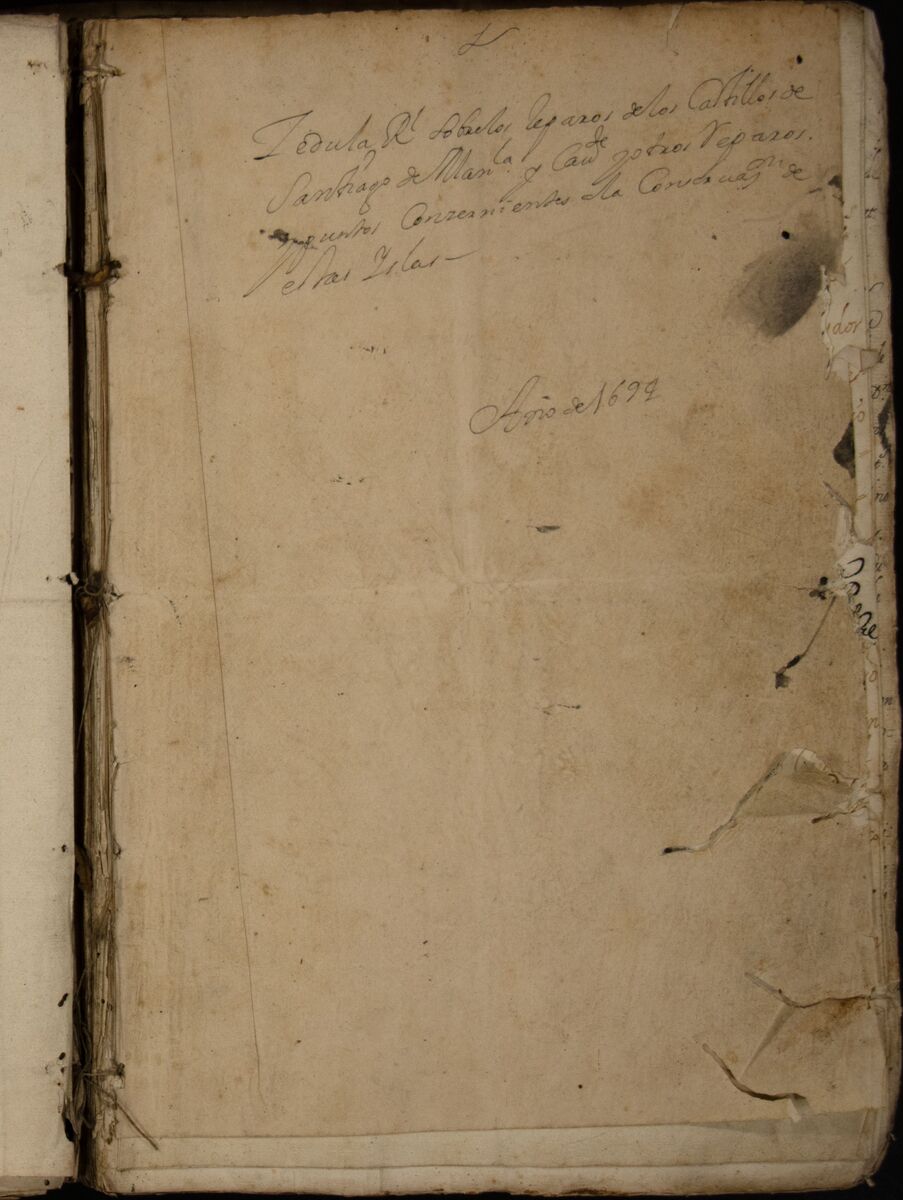 Zedula R.l sobre los reparos de los Castillos de
Santiago de Man.la y Cau.te y otros reparos.
y puntos Conzernientes a la Conseruaz.n de
estas Yslas—
Año de 1694
dor